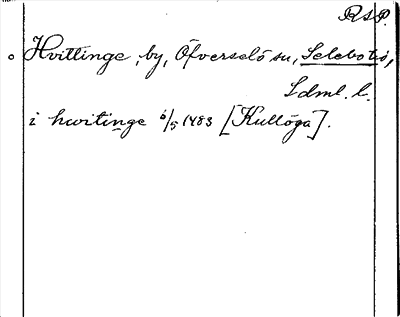 RSP.
Hvittinge, by, Öfverselö sn, Selebo hd,
Sdml. l.
i hwitinge 6/5 1483 [Kullöga].